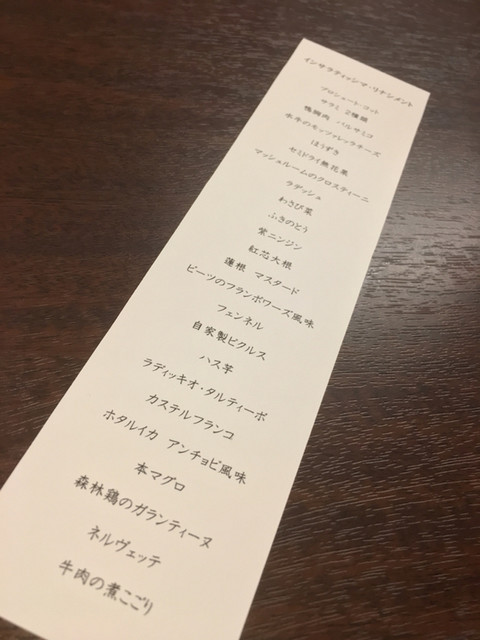 インサラティッシマ・リナシメント
プロシュート・コット
サラミ 2種類
鴨胸肉 バルサミコ
水牛のモッツァレッラチーズ
ほうずき
セミドライ無花果
マッシュルームのクロスティーニ
ラデッシュ
わさび菜
ふきのとう
紫ニンジン
紅芯大根
蓮根 マスタード
ビーツのフランボワーズ風味
フェンネル
自家製ピクルス
ハス芋
ラディッキオ・タルティーボ
カステルフランコ
ホタルイカ アンチョビ風味
本マグロ
森林鶏のガランティーヌ
ネルヴェッテ
牛肉の煮こごり